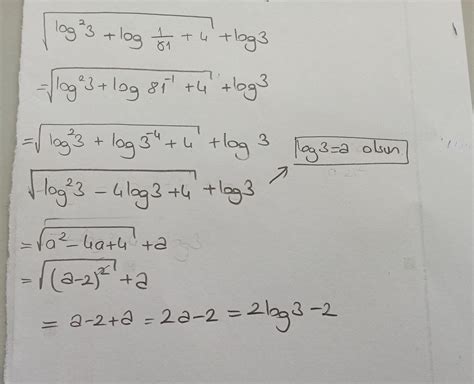 √(log²3 + log 1/81 + 4) + log3
= √(log²3 + log 81⁻¹ + 4) + log3
= √(log²3 + log3⁻⁴ + 4) + log 3
log3=a olsun
√(log²3 - 4log3 + 4) + log3
= √(a² - 4a + 4) + a
= √((a-2)²) + a
= a-2+a = 2a-2 = 2log3-2